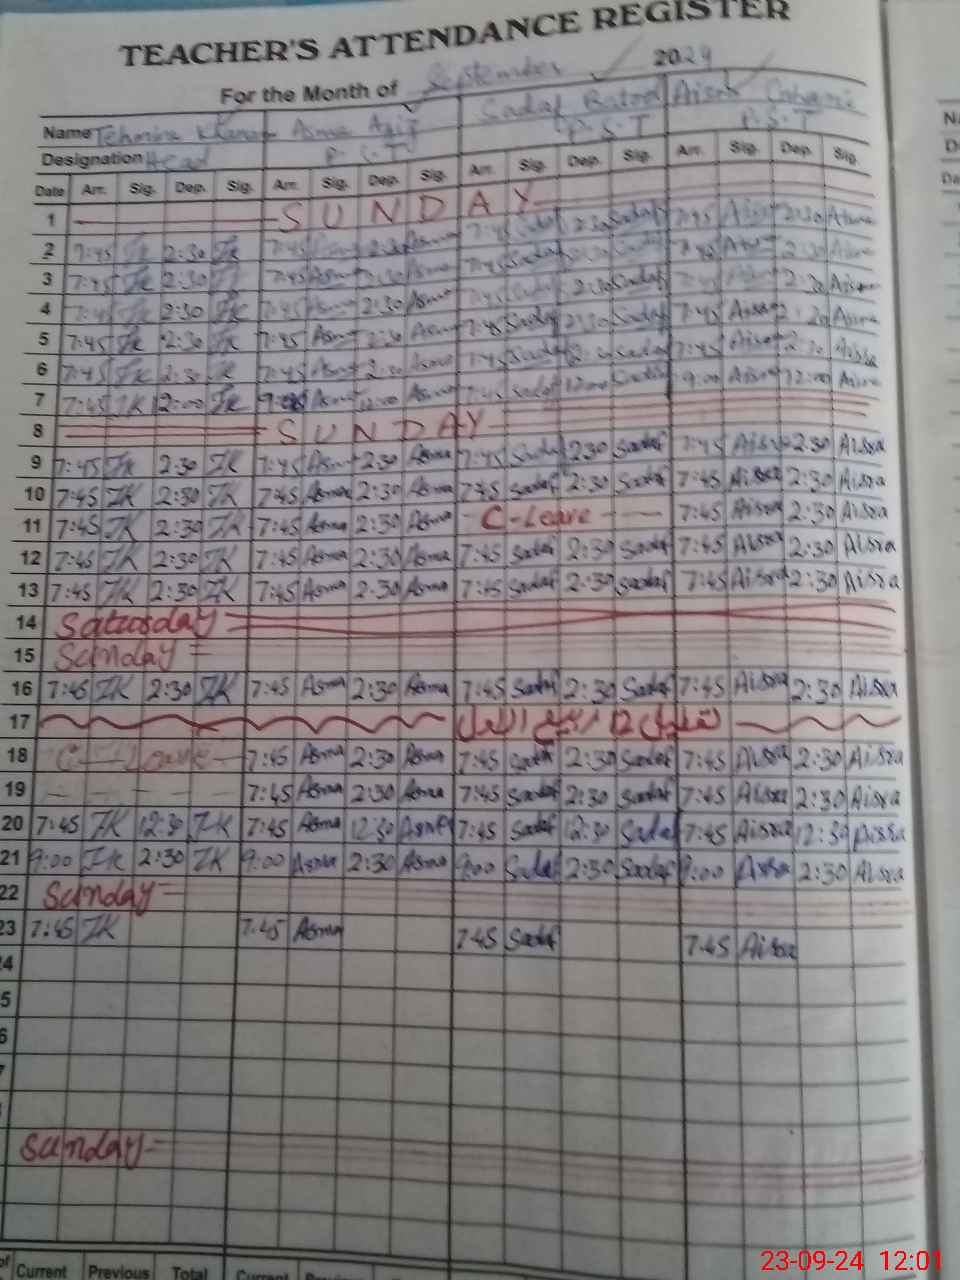 TEACHER'S ATTENDANCE REGISTER
For the Month of September 2024
Name Tehmina Khanam Asma Aziz Sadaf Batool Aisra
Designation Head P.S.T P.S.T P.S.T
Date Arr. Sig. Dep. Sig. Arr. Sig. Dep. Sig. Arr. Sig. Dep. Sig. Arr. Sig. Dep. Sig.
1 SUNDAY
2 7:45 TK 2:30 TK 7:45 2:30 Asma 7:45 Sadaf 2:30 Sadaf 7:45 2:30
3 7:45 TK 2:30 7:45 Asma 2:30 Asma 7:45 Sadaf 2:30 7:45 2:30
4 7:45 TK 2:30 TK 7:45 Asma 2:30 Asma 7:45 2:30 Sadaf 7:45 2:30 Aisra
5 7:45 TK 2:30 TK 7:45 Asma 2:30 Asma 7:45 Sadaf 2:30 Sadaf 7:45 Aisra 2:30 Aisra
6 7:45 TK 2:30 TK 7:45 Asma 2:30 Asma 7:45 Sadaf 2:30 Sadaf 7:45 Aisra 2:30 Aisra
7 7:45 TK 12:00 TK 9:00 Asma 12:00 Asma 7:45 Sadaf 12:00 Sadaf 9:00 Aisra 12:00 Aisra
8 SUNDAY
9 7:45 TK 2:30 TK 7:45 Asma 2:30 Asma 7:45 Sadaf 2:30 Sadaf 7:45 Aisra 2:30 Aisra
10 7:45 TK 2:30 TK 7:45 Asma 2:30 Asma 7:45 Sadaf 2:30 Sadaf 7:45 Aisra 2:30 Aisra
11 7:45 TK 2:30 TK 7:45 Asma 2:30 Asma C-Leave 7:45 Aisra 2:30 Aisra
12 7:45 TK 2:30 TK 7:45 Asma 2:30 Asma 7:45 Sadaf 2:30 Sadaf 7:45 Aisra 2:30 Aisra
13 7:45 TK 2:30 TK 7:45 Asma 2:30 Asma 7:45 Sadaf 2:30 Sadaf 7:45 Aisra 2:30 Aisra
14 Saturday
15 Sunday =
16 7:45 TK 2:30 TK 7:45 Asma 2:30 Asma 7:45 Sadaf 2:30 Sadaf 7:45 Aisra 2:30 Aisra
17 تعطیل 12 ربیع الاول
18 C-Leave 7:45 Asma 2:30 Asma 7:45 Sadaf 2:30 Sadaf 7:45 Aisra 2:30 Aisra
19 7:45 Asma 2:30 Asma 7:45 Sadaf 2:30 Sadaf 7:45 Aisra 2:30 Aisra
20 7:45 TK 12:30 TK 7:45 Asma 12:30 Asma 7:45 Sadaf 12:30 Sadaf 7:45 Aisra 12:30 Aisra
21 9:00 TK 2:30 TK 9:00 Asma 2:30 Asma 9:00 Sadaf 2:30 Sadaf 9:00 Aisra 2:30 Aisra
22 Sunday =
23 7:45 TK 7:45 Asma 7:45 Sadaf 7:45 Aisra
4
5
6
7
Sunday -
of Current Previous Total Current
23-09-24 12:01